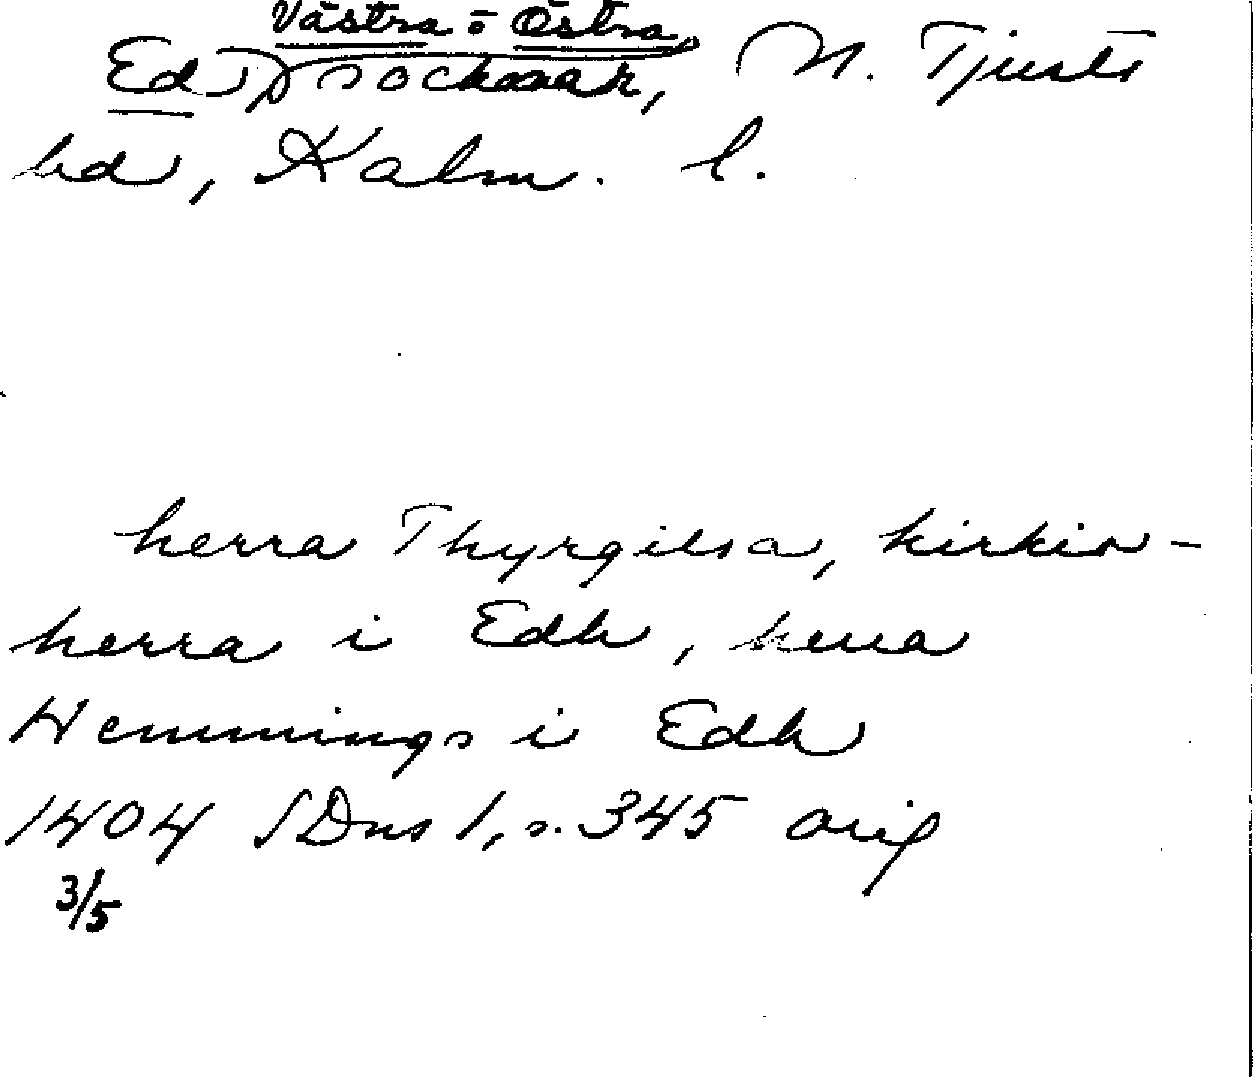 Västra o Östra
Ed, socknar, N. Tjusts
hd, Kalm. l.
herra Thyrgilsa, kirkio-
herra i Edh, herra
Hemmings i Edh
1404 SDns 1, s. 345 orig
3/5